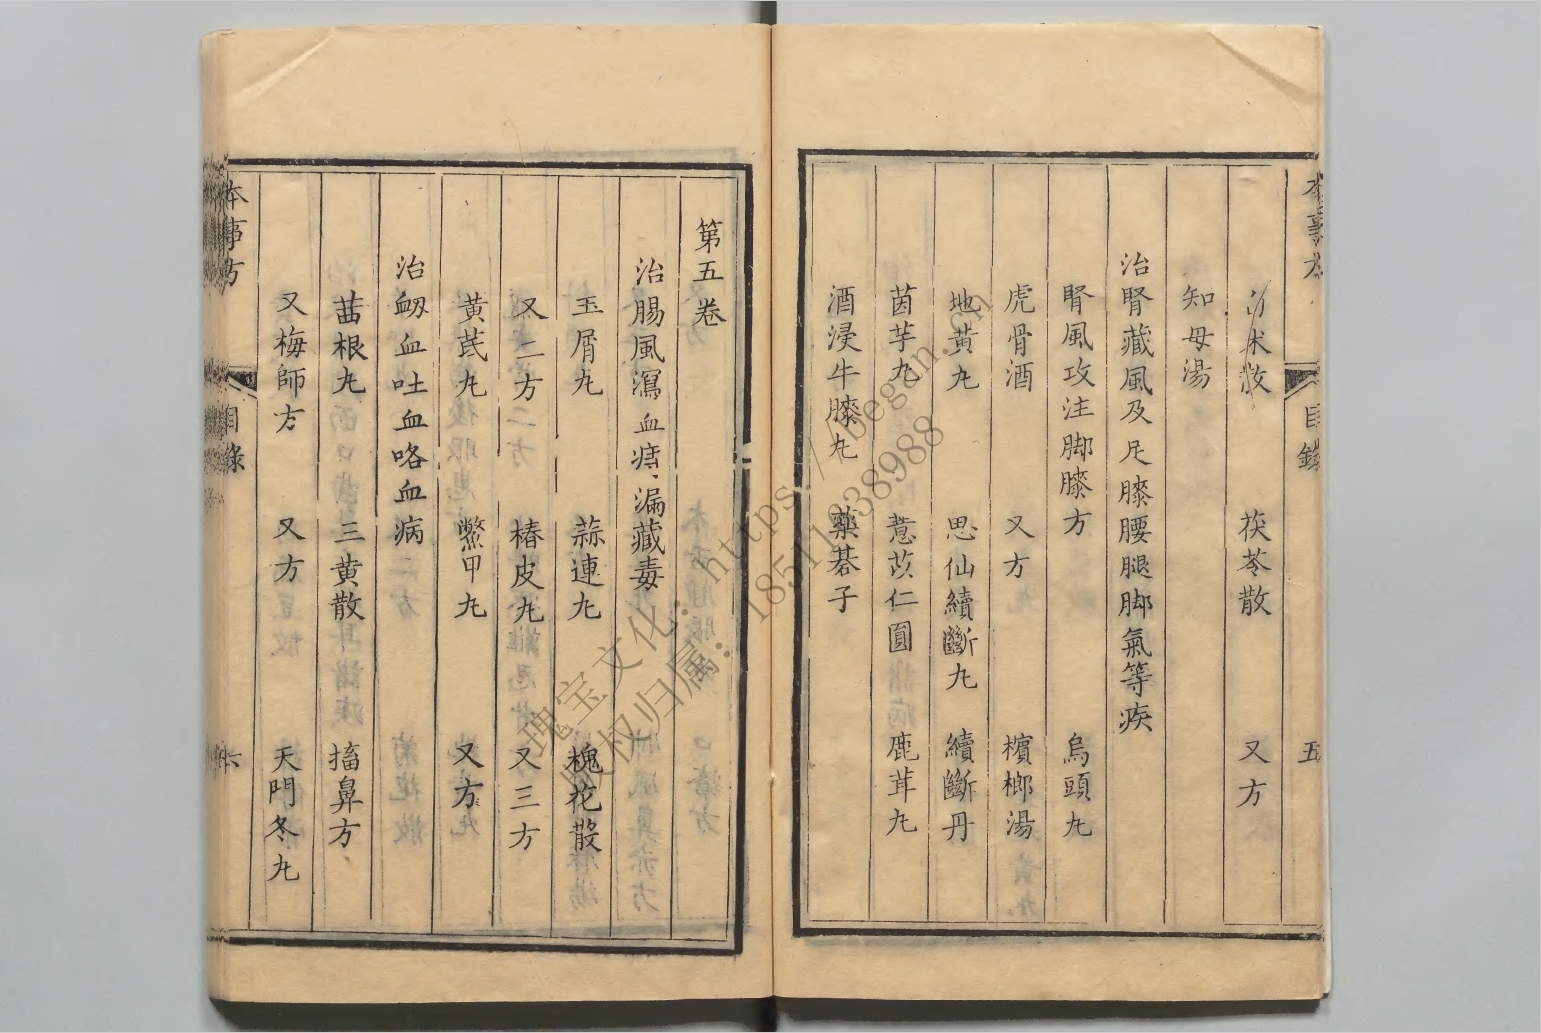 本事方 目錄 五
茯苓散 又方
知母湯
治腎藏風及足膝腰腿脚氣等疾
腎風攻注脚膝方 烏頭丸
虎骨酒 又方 檳榔湯
地黃丸 思仙續斷丸 續斷丹
茵芋丸 薏苡仁圓 鹿茸丸
酒浸牛膝丸 藥碁子
第五卷
治腸風瀉血痔漏藏毒
玉屑丸 蒜連丸 槐花散
又二方 椿皮丸 又三方
黃芪丸 鱉甲丸 又方
治衂血吐血咯血病
茜根丸 三黃散 搐鼻方
又梅師方 又方 天門冬丸
本事方 目錄 六
瑰宝文化: https://began.cn
版权归属: 18511838988